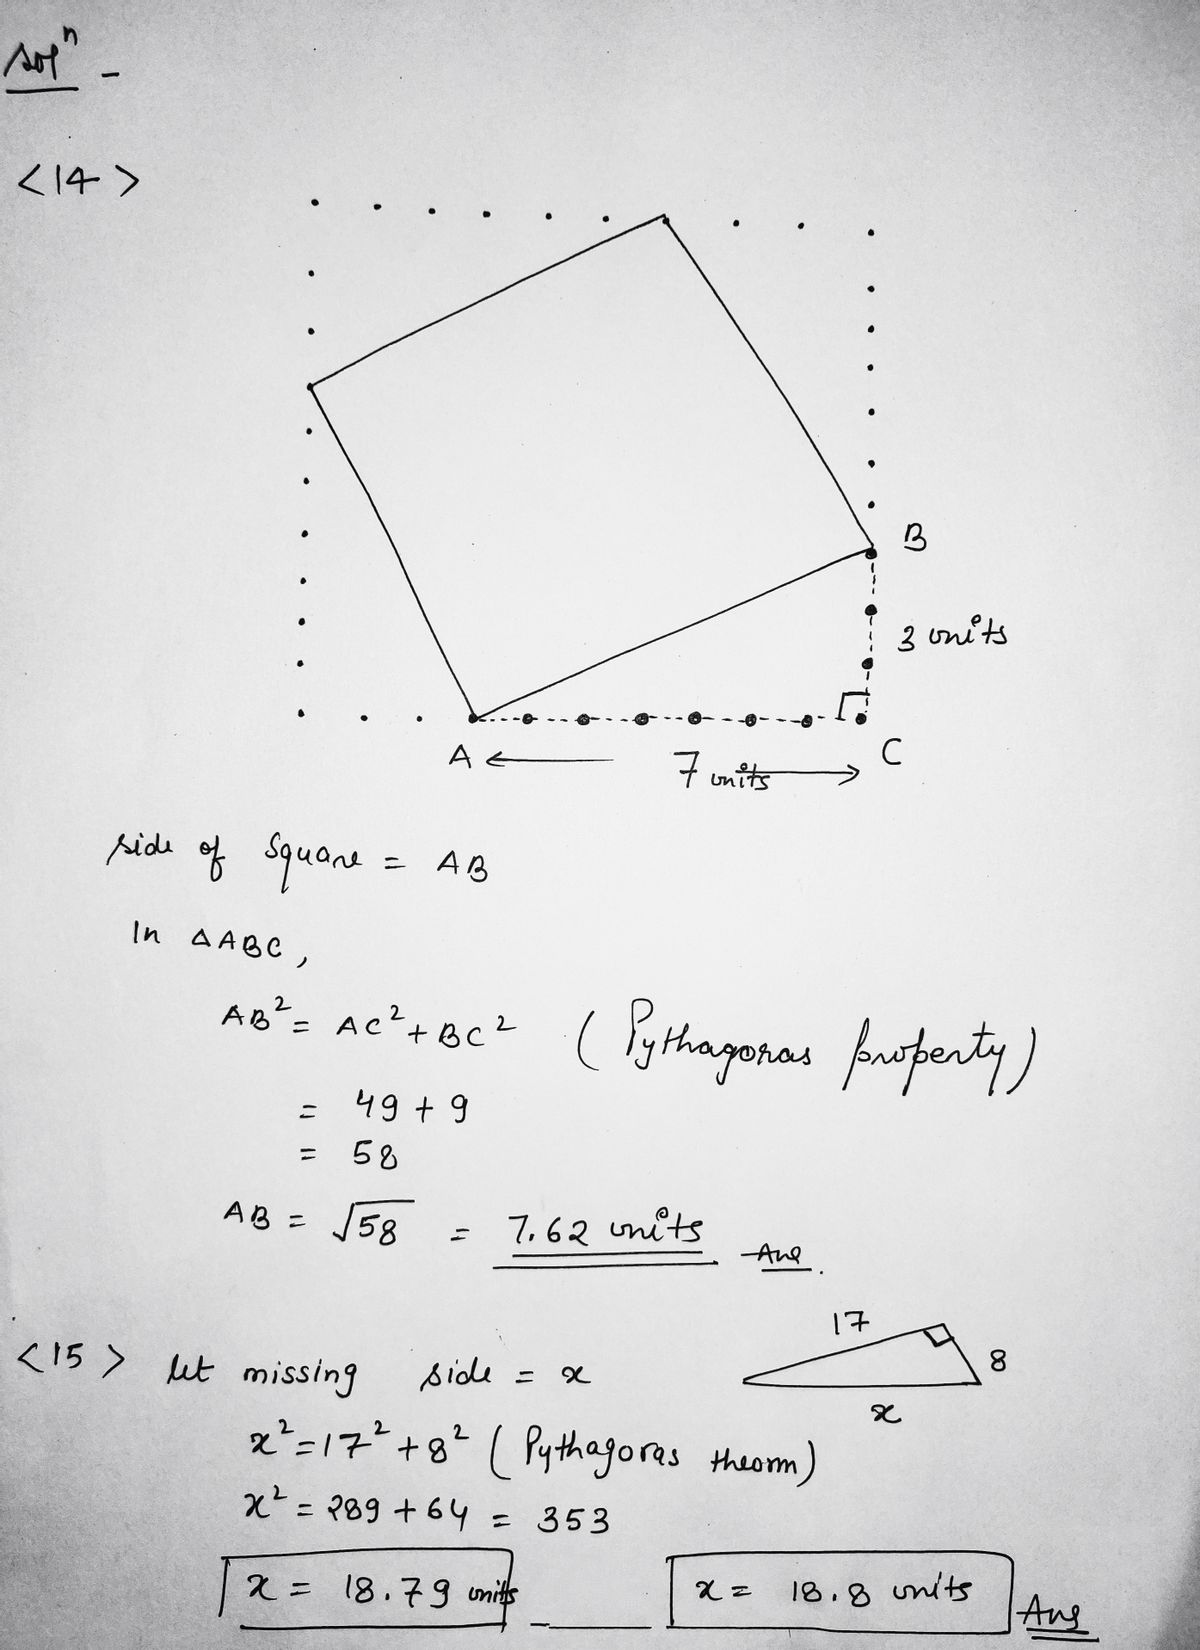 solⁿ -
<14>
B
3 units
A
7 units
C
side of square = AB
In △ABC,
AB² = AC² + BC² (Pythagoras property)
= 49 + 9
= 58
AB = √58 = 7.62 units Ans.
17
<15> let missing side = x
8
x
x² = 17² + 8² (Pythagoras theorm)
x² = 289 + 64 = 353
x = 18.79 units x = 18.8 units Ans